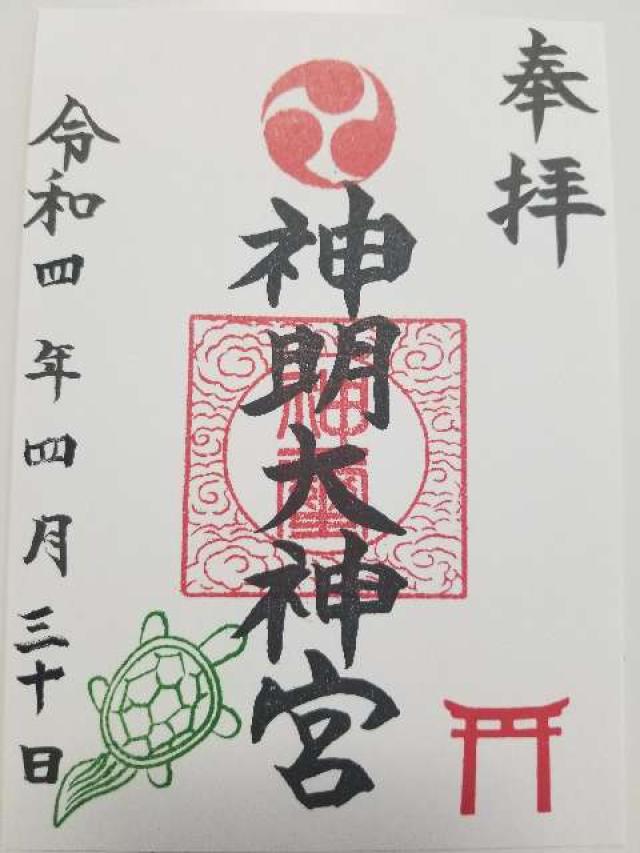 奉拝
神明大神宮
神璽
令和四年四月三十日